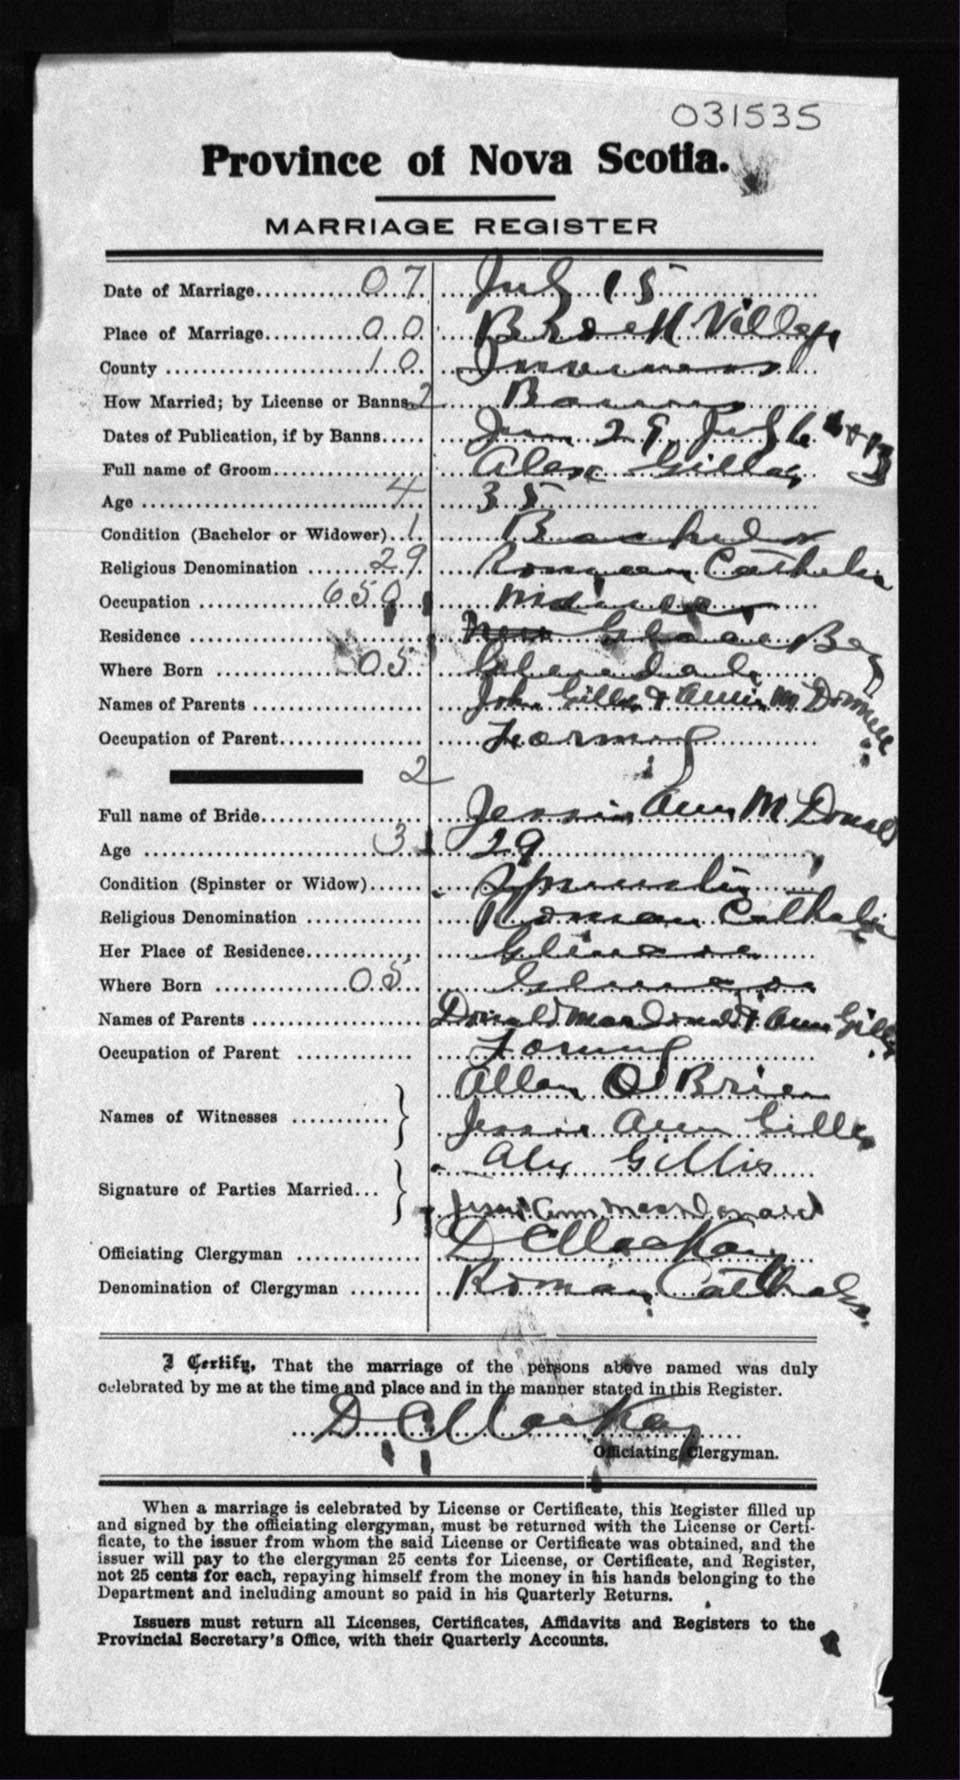 031535
Province of Nova Scotia.
MARRIAGE REGISTER
Date of Marriage 07 July 15
Place of Marriage 00 Brook Village
County 10 Inverness
How Married; by License or Banns 2 Banns
Dates of Publication, if by Banns Jun 29, July 6 + 13
Full name of Groom Alex Gillis
Age 4 35
Condition (Bachelor or Widower) 1 Bachelor
Religious Denomination 29 Roman Catholic
Occupation 650 Miner
Residence Glace Bay
Where Born 05 Glendale
Names of Parents John Gillis + Annie McDonnell
Occupation of Parent Farming
2
Full name of Bride Jessie Ann McDonald
Age 3 29
Condition (Spinster or Widow) Spinster
Religious Denomination Roman Catholic
Her Place of Residence Glencoe
Where Born 05 Glencoe
Names of Parents Donald MacDonald + Ann Gillis
Occupation of Parent Farming
Allan O'Brien
Names of Witnesses
Jessie Ann Gillis
Alex Gillis
Signature of Parties Married
Jessie Ann MacDonald
Officiating Clergyman D C MacKay
Denomination of Clergyman Roman Catholic
I Certify, That the marriage of the persons above named was duly
celebrated by me at the time and place and in the manner stated in this Register.
D C MacKay
Officiating Clergyman.
When a marriage is celebrated by License or Certificate, this Register filled up
and signed by the officiating clergyman, must be returned with the License or Certi-
ficate, to the issuer from whom the said License or Certificate was obtained, and the
issuer will pay to the clergyman 25 cents for License, or Certificate, and Register,
not 25 cents for each, repaying himself from the money in his hands belonging to the
Department and including amount so paid in his Quarterly Returns.
Issuers must return all Licenses, Certificates, Affidavits and Registers to the
Provincial Secretary's Office, with their Quarterly Accounts.